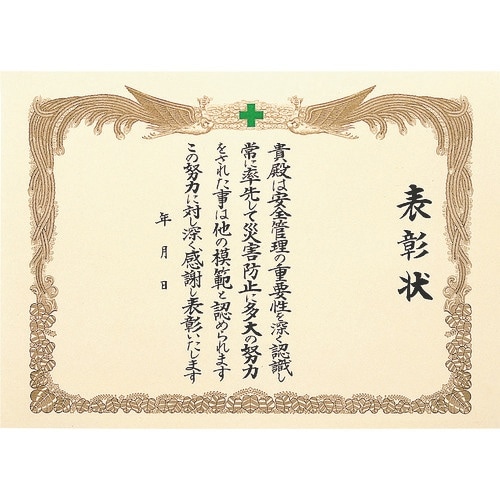 表彰状
貴殿は安全管理の重要性を深く認識し
常に率先して災害防止に多大の努力
をされた事は他の模範と認められます
この努力に対し深く感謝し表彰いたします
年月日